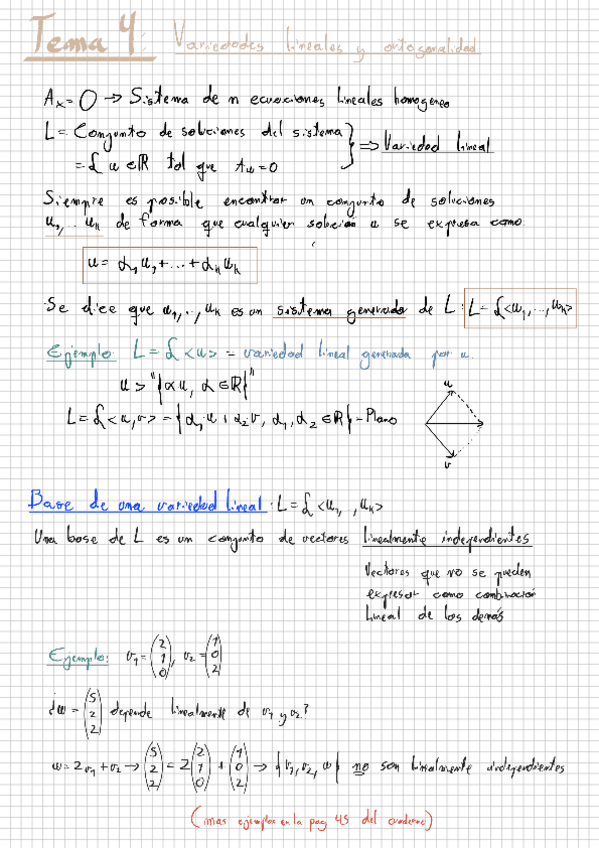 Tema 4: Variedades lineales y ortogonalidad
Ax = 0 → Sistema de n ecuaciones lineales homogeneo
L = Conjunto de soluciones del sistema
= { u ∈ ℝ tal que Au = 0
} ⇒ Variedad lineal
Siempre es posible encontrar un conjunto de soluciones
u₁, .. uₖ de forma que cualquier solución u se expresa como
u = α₁u₁ + ... + αₖuₖ
Se dice que u₁, .., uₖ es un sistema generado de L : L = ℒ<u₁, ..., uₖ>
Ejemplo: L = ℒ<u> = variedad lineal generada por u.
u > "{αu, α ∈ ℝ}"
L = ℒ<u, v> = {α₁u + α₂v, α₁, α₂ ∈ ℝ} - Plano
u
v
Base de una variedad lineal : L = ℒ <u₁, , uₖ>
Una base de L es un conjunto de vectores linealmente independientes
Vectores que no se pueden
expresar como combinación
lineal de los demás
Ejemplo: v₁ = (2 1 0), v₂ = (1 0 2)
¿w = (5 2 2) depende linealmente de v₁ y v₂?
w = 2v₁ + v₂ → (5 2 2) = 2 (2 1 0) + (1 0 2) → {v₁, v₂, w} no son linealmente independientes
(mas ejemplos en la pag 45 del cuaderno)